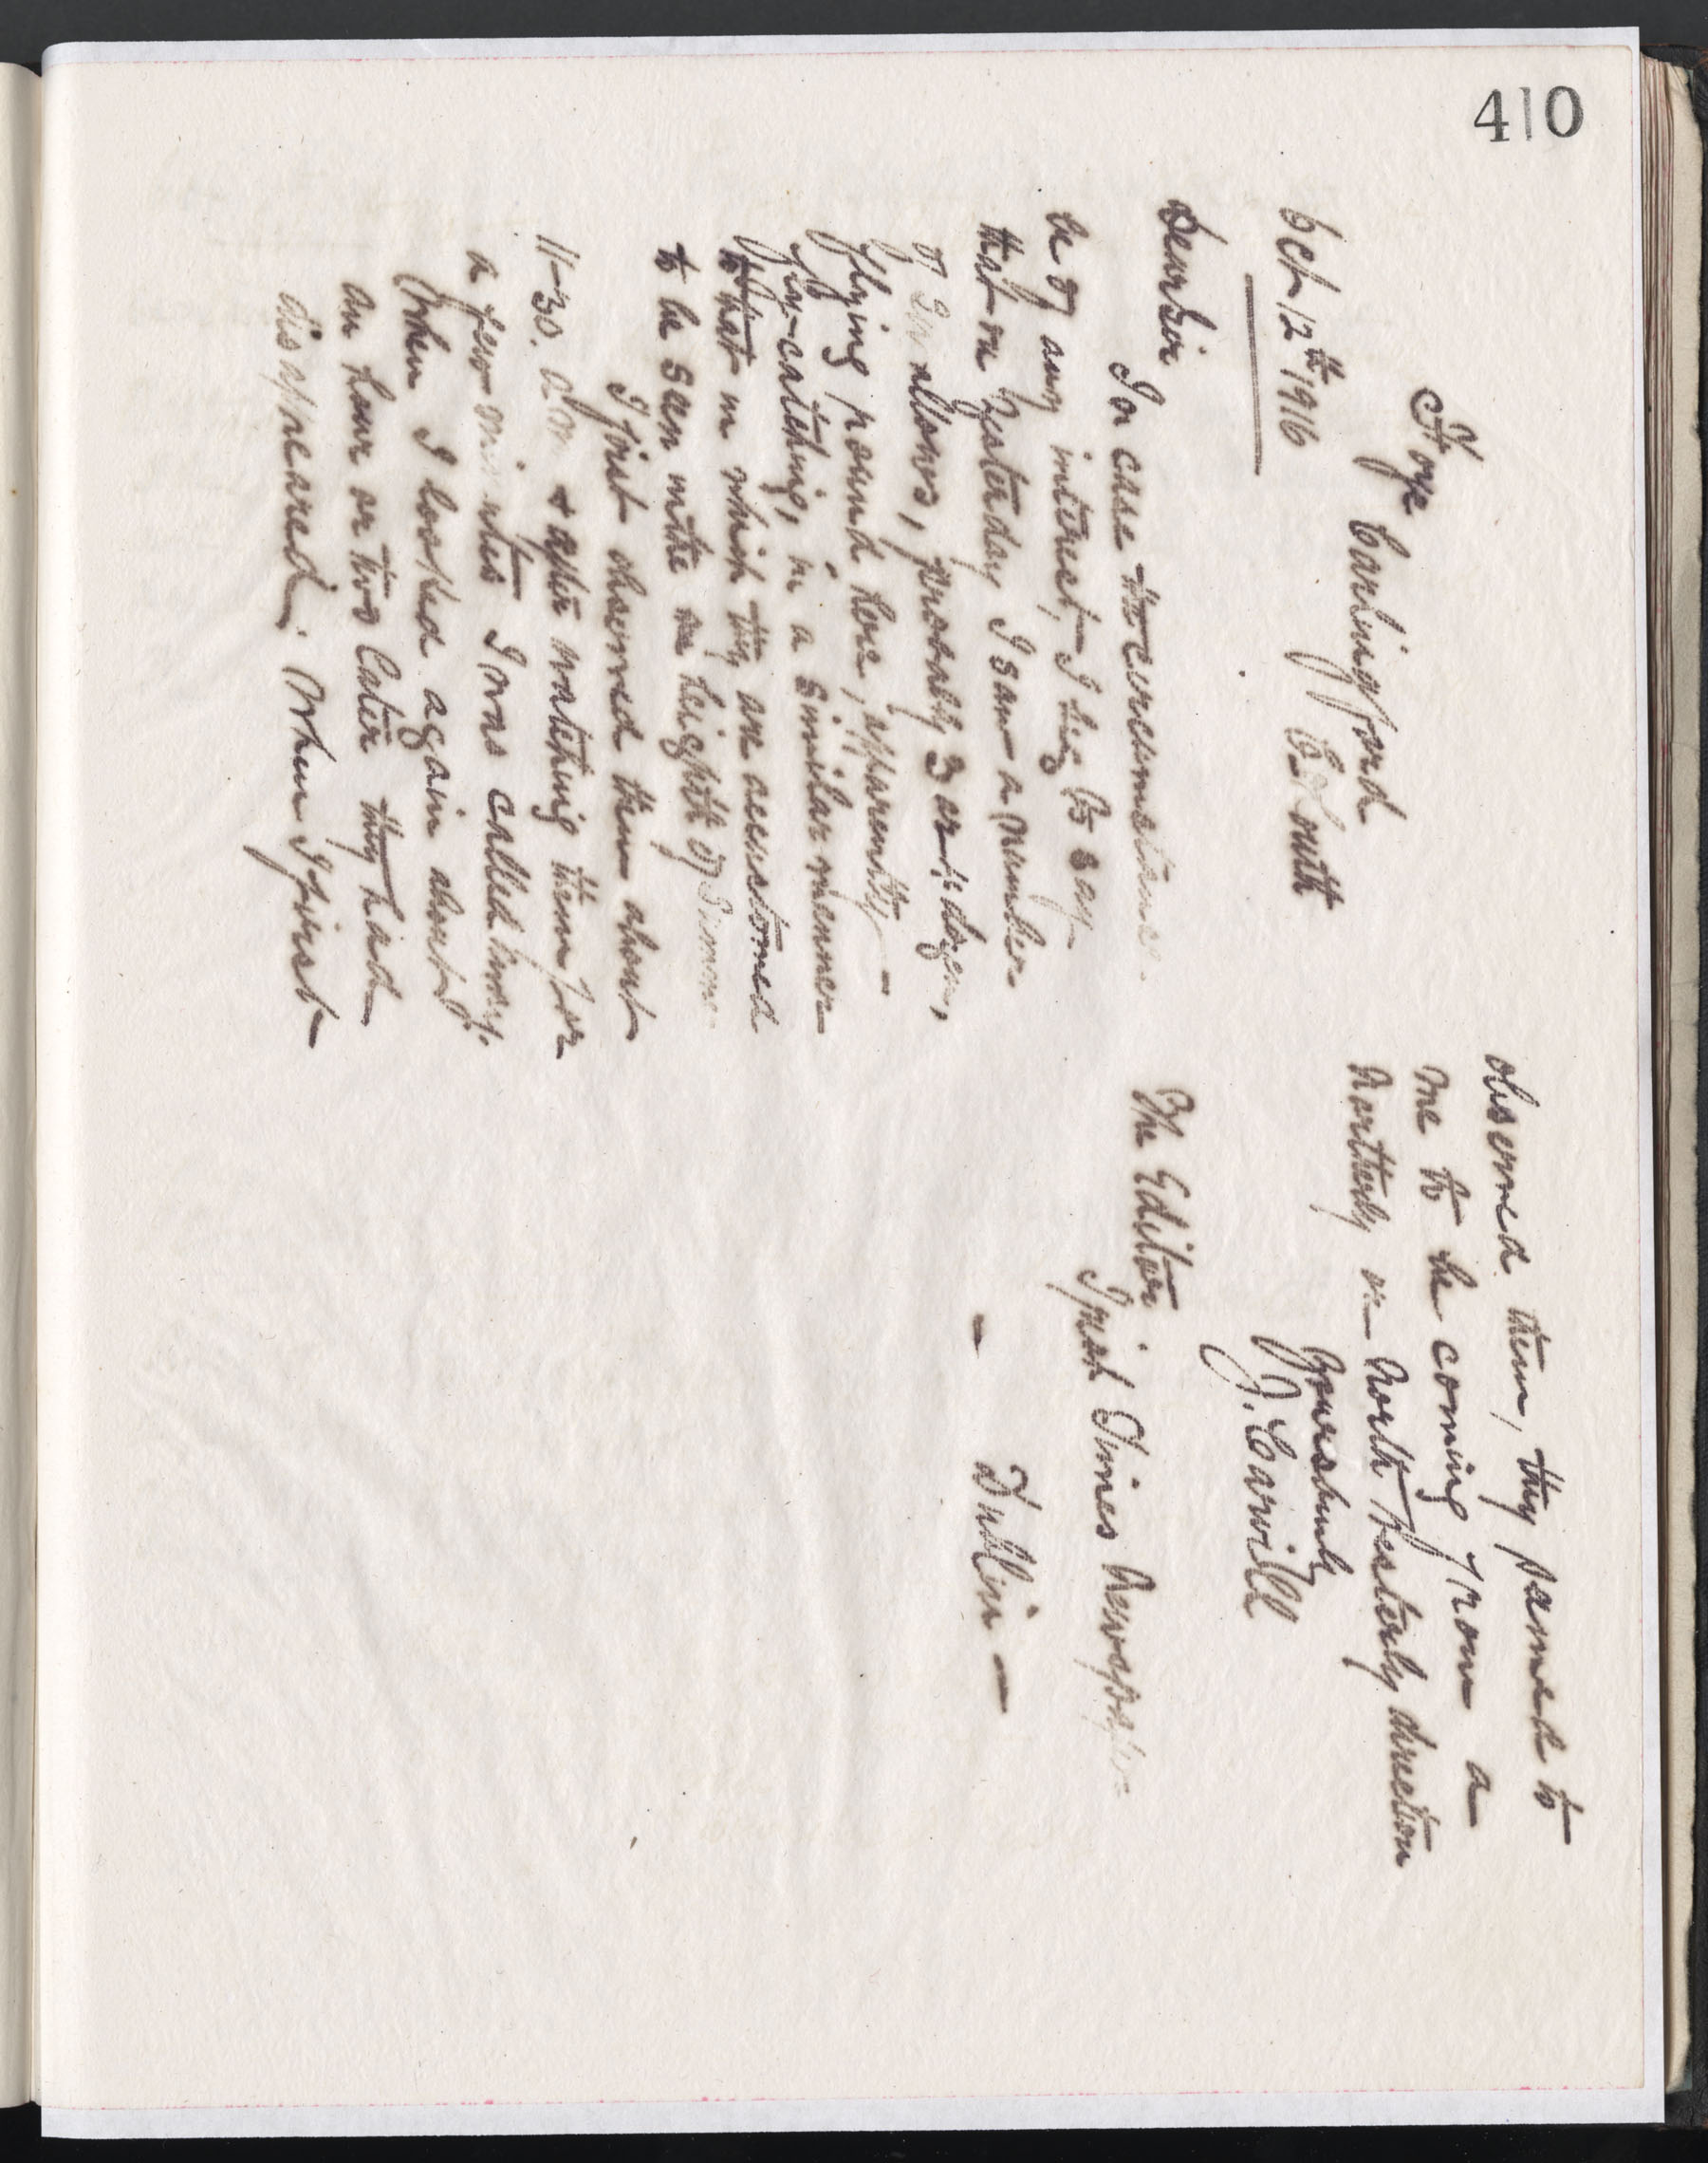 410
Foye
Carlingford
Co Louth
Oct 12th 1916
Dear Sir
In case the circumstance
be of any interest, I beg to say
that on Yesterday I saw a number
of Swallows, probably 3 or 4 dozen,
flying round here, apparently
fly-catching, in a similar manner
to that in which they are accustomed
to be seen in the on height of Summer
I first observed them about
11-30. a.m & after watching them for
a few minutes I was called away.
When I looked again about
an hour or two later they had
disappeared. When I first
observed them, they seemed to
me to be coming from a
Northerly or North Westerly direction
Yours truly
J. Carvill
The Editor
Irish Times Newspaper
- Dublin -